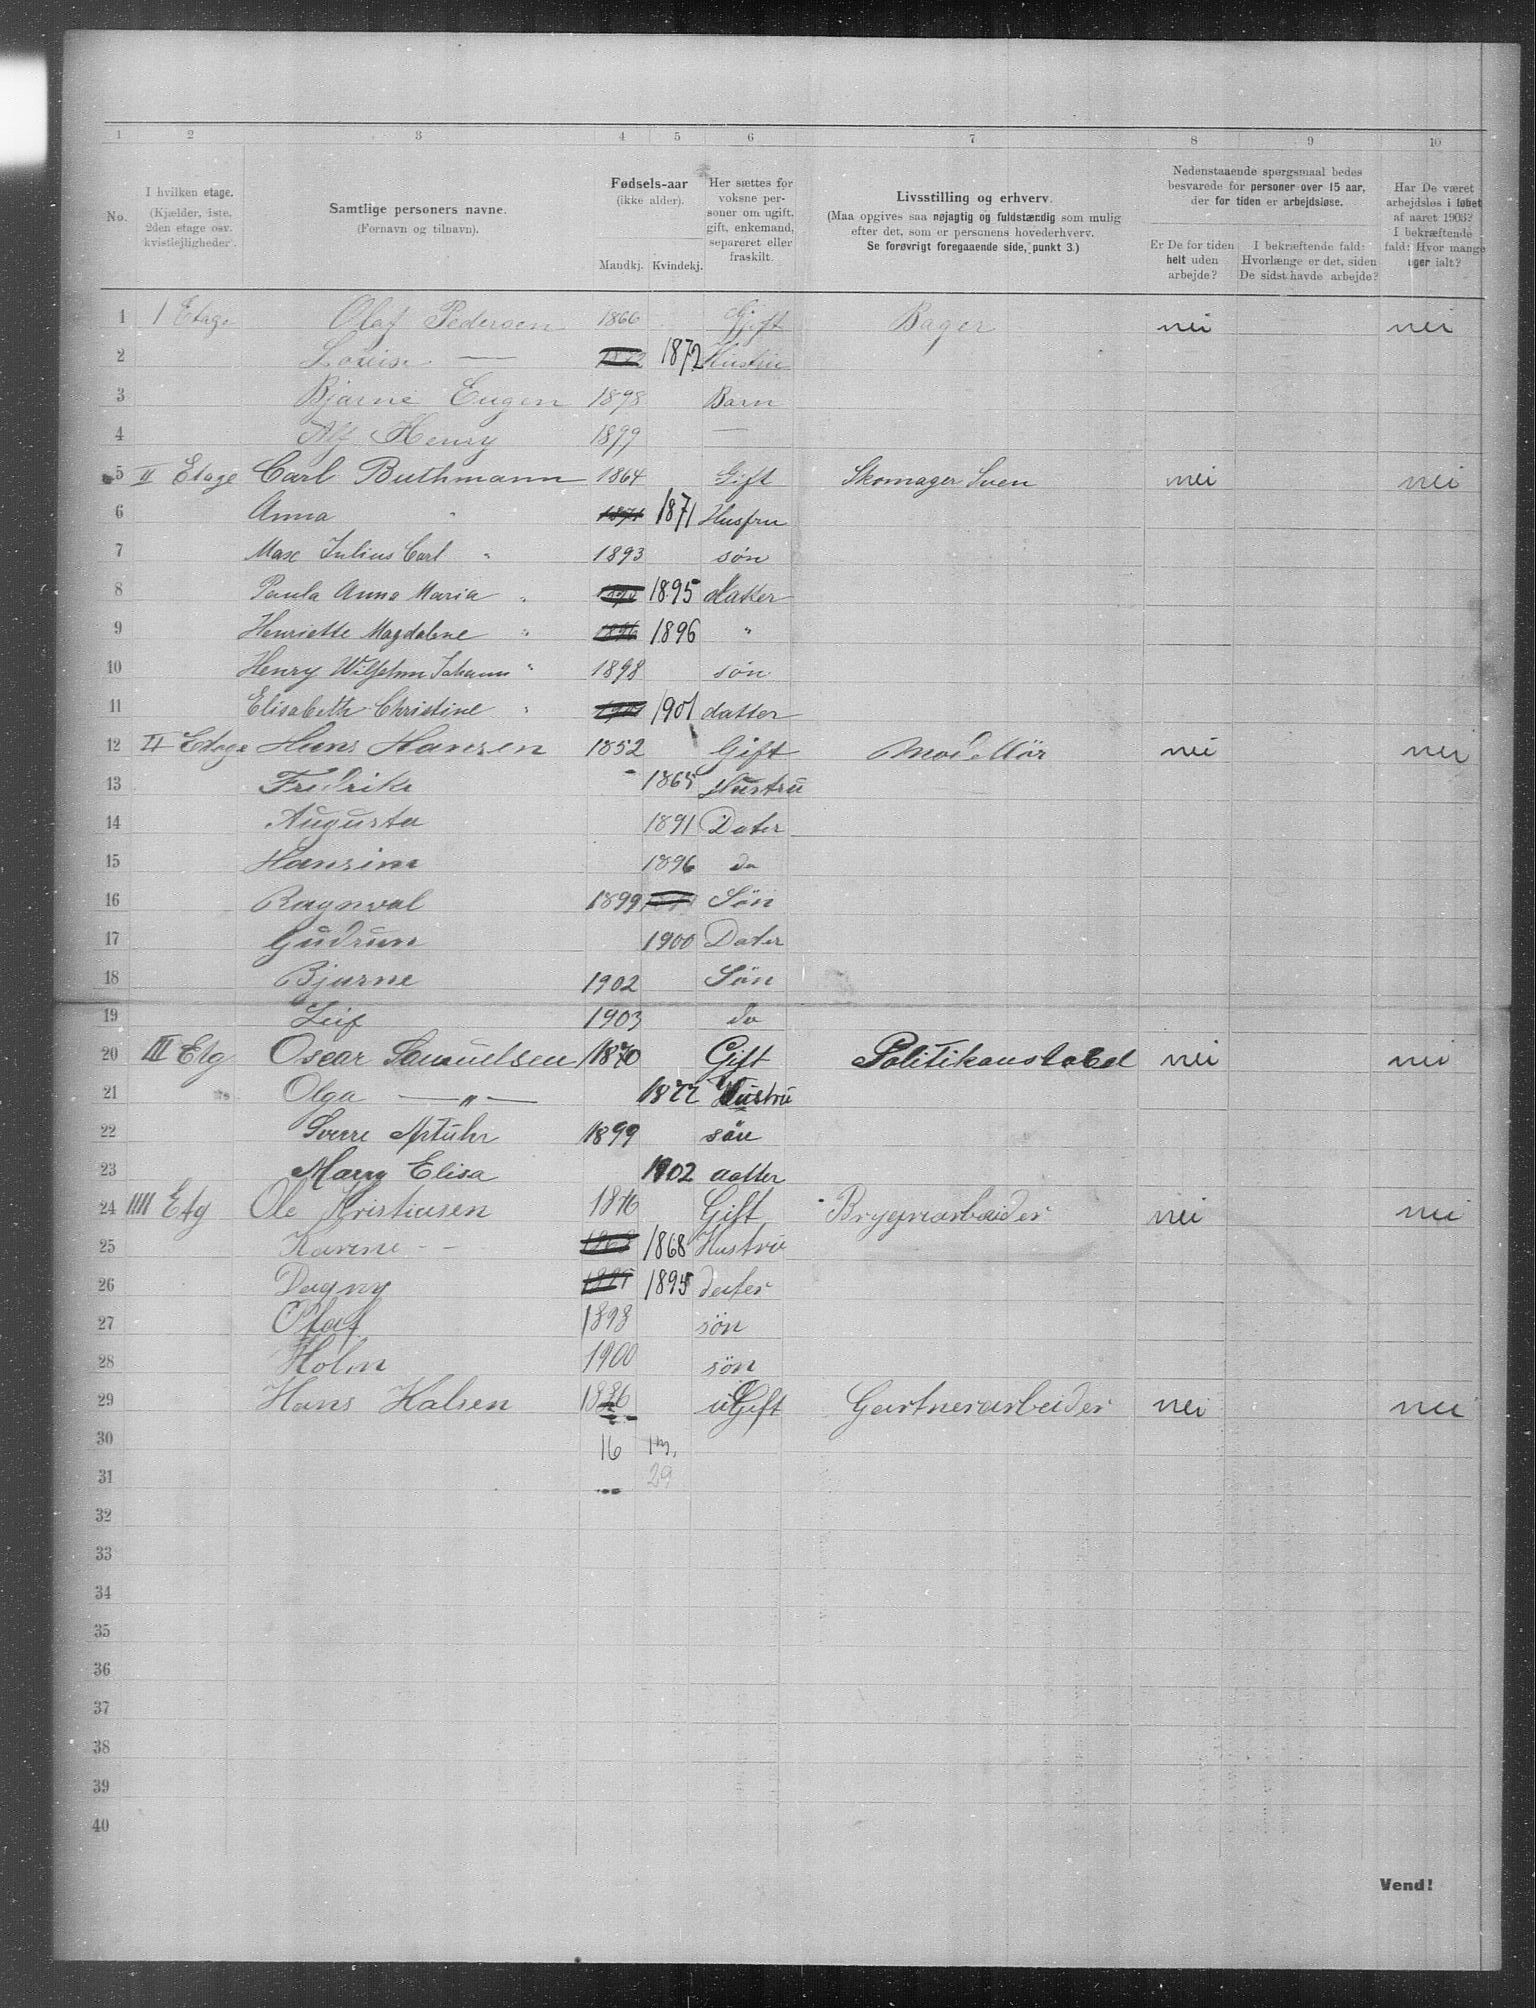 1 2 3 4 5 6 7 8 9 10
No.
I hvilken etage.
(Kjælder, 1ste, 2den etage osv. kvistlejligheder).
Samtlige personers navne.
(Fornavn og tilnavn).
Fødsels-aar
(ikke alder).
Mandkj. Kvindekj.
Her sættes for voksne personer om ugift, gift, enkemand, separeret eller fraskilt.
Livsstilling og erhverv.
(Maa opgives saa nøjagtig og fuldstændig som mulig efter det, som er personens hovederhverv.
Se forøvrigt foregaaende side, punkt 3.)
Nedenstaaende spørgsmaal bedes besvarede for personer over 15 aar, der for tiden er arbejdsløse.
Er De for tiden helt uden arbejde?
I bekræftende fald: Hvorlænge er det, siden De sidst havde arbejde?
Har De været arbejdsløs i løbet af aaret 1903? I bekræftende fald: Hvor mange uger ialt?
1 1 Etage Olaf Pedersen 1866 Gift Bager nei nei
2 Louise — 1872 1872 Hustru
3 Bjarne Eugen 1898 Barn
4 Alf Henry 1899 —
5 II Etage Carl Buthmann 1864 Gift Skomager Sven nei nei
6 Anna " 1871 1871 Husfru
7 Max Julius Carl " 1893 søn
8 Paula Anna Maria " 1895 datter
9 Henriette Magdalene " 1896 1896 "
10 Henry Wilhelm Johann " 1898 søn
11 Elisabeth Christine " 1901 1901 datter
12 II Etage Hans Hansen 1852 Gift Modellør nei nei
13 Fredrike 1865 Hustru
14 Augusta 1891 Dater
15 Hansine 1896 do
16 Ragnval 1899 Søn
17 Gudrun 1900 Dater
18 Bjarne 1902 Søn
19 Leif 1903 do
20 III Etg Oscar Samuelsen 1870 Gift Politikonstabel nei nei
21 Olga —"— 1877 Hustru
22 Sverre Artuhr 1899 søn
23 Marry Elisa 1902 datter
24 IIII Etg Ole Kristiansen 1876 Gift Bryggeriarbeider nei nei
25 Karine - — 1868 1868 Hustru
26 Dagny 1895 dater
27 Olaf 1898 søn
28 Holm 1900 søn
29 Hans Halsen 1886 uGift Gartnerarbeider nei nei
30 16 13,
31 29
32
33
34
35
36
37
38
39
40
Vend!